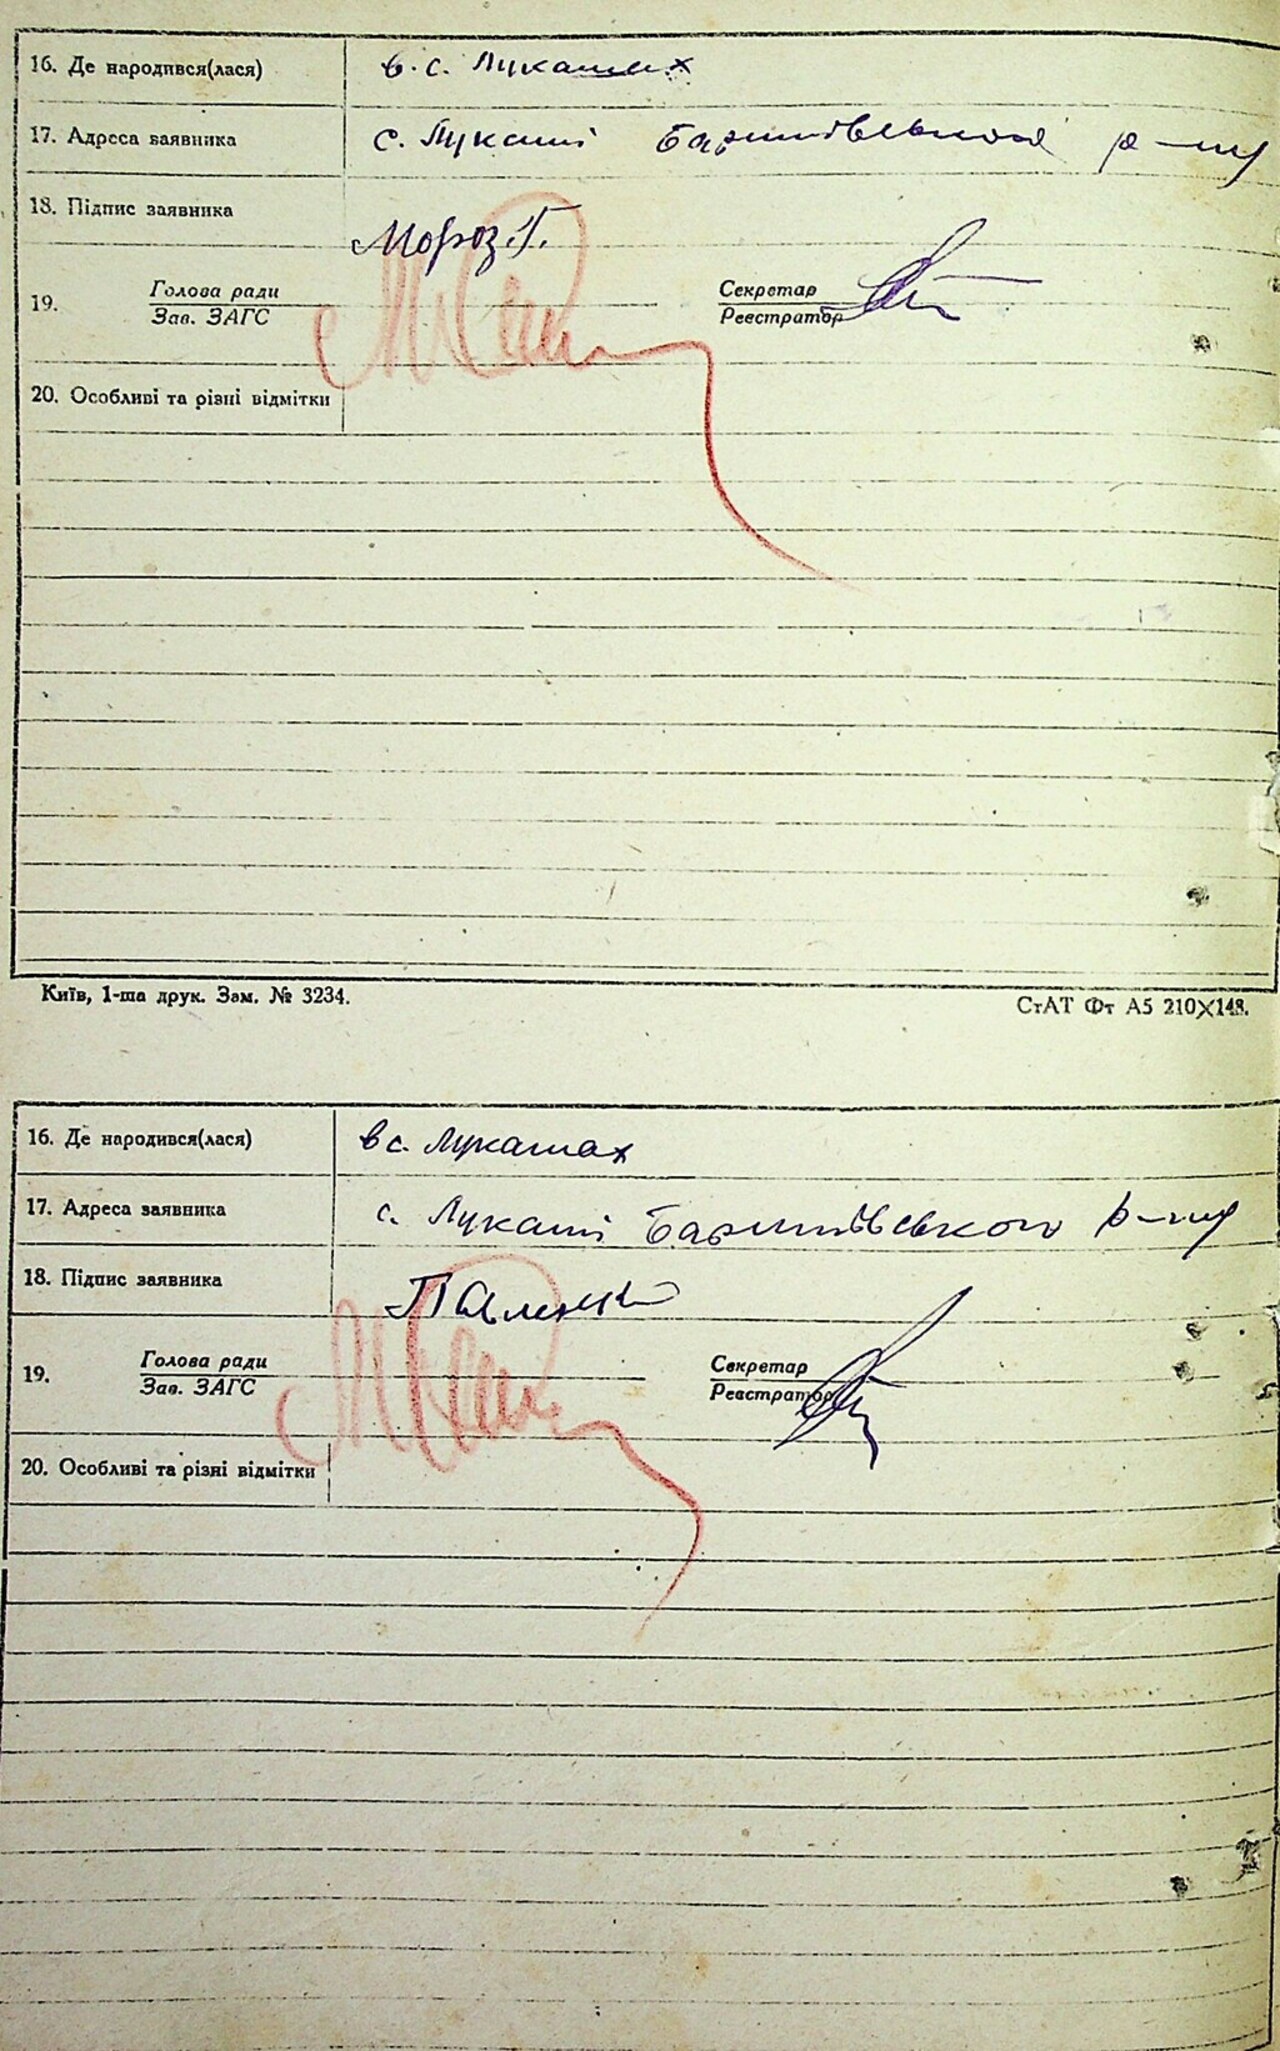 16. Де народився(лася) в. с. Лукашах
17. Адреса заявника с. Лукаші Баришівського р-ну
18. Підпис заявника Мороз Г.
19. Голова ради Секретар
Зав. ЗАГС Реєстратор
20. Особливі та різні відмітки
Київ, 1-ша друк. Зам. № 3234. СтАТ Фт А5 210×148.
16. Де народився(лася) в с. Лукашах
17. Адреса заявника с. Лукаші Баришівського р-ну
18. Підпис заявника
19. Голова ради Секретар
Зав. ЗАГС Реєстратор
20. Особливі та різні відмітки